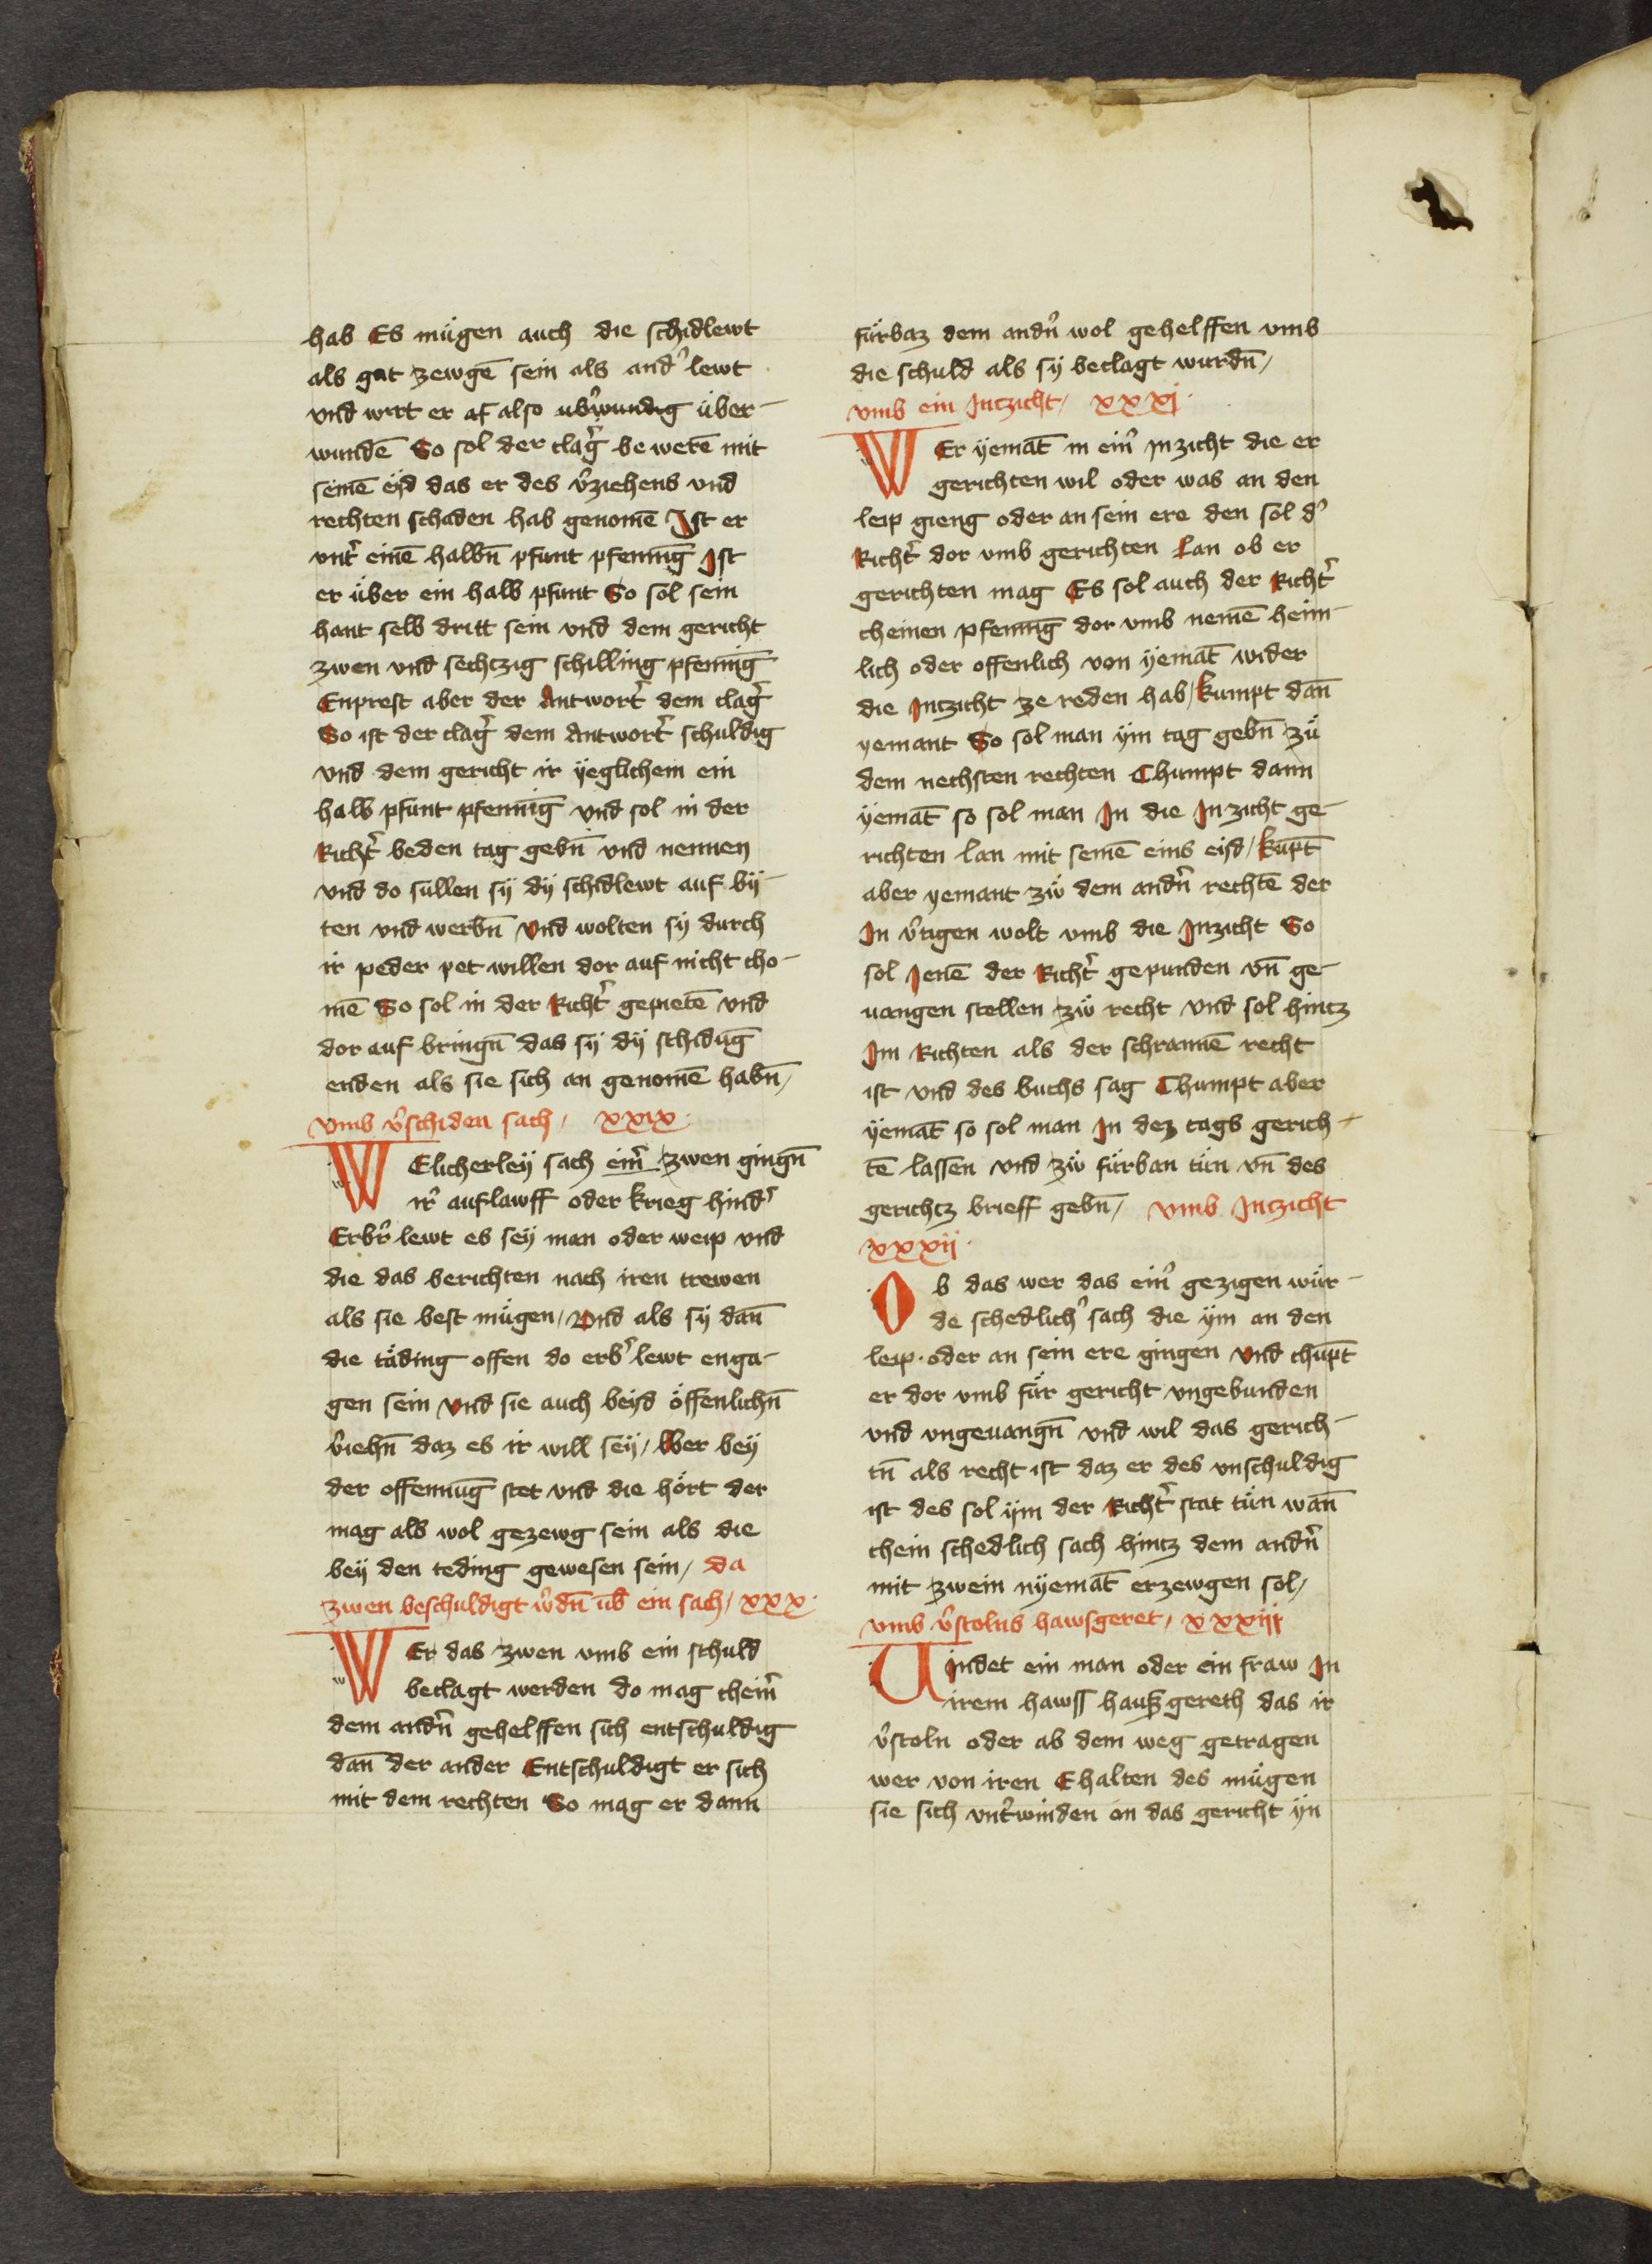 hab Es mu̇gen auch die schidlewt
als gut zewgē sein als and̾ lewt
vnd wirt er af also vb̾wundig über-
wundē So sol der clag̾ be werē mit
seinē eyd das er des v̾ziehens vnd
rechten schaden hab genomē Ist er
vnt̾ einē halbn̄ pfunt pfennīg Ist
er u̇ber ein halb pfunt So sol sein
hant selb dritt sein vnd dem gericht
zwen vnd sechtzig schilling pfennīg
Enprest aber der Antwort̾ dem clag̾
So ist der clag̾ dem Antwort̾ schuldig
vnd dem gericht ir ÿeglichem ein
halb pfunt pfennīg vnd sol in der
Richt̾ beden tag gebn̄ vnd nennen
vnd do sullen sÿ dÿ schidlewt auf bÿ-
ten vnd werbn̄ vnd wolten sÿ durch
ir peder pet willen dor auf nicht cho-
mē So sol in der Richt̾ gepietē vnd
dor auf bringn̄ das sÿ dÿ schidūg
enden als sie sich an genomē habn̄/
vmb v̾schiden sach/ xxix·
WElicherleÿ sach ein̾ zwen gingn̄
ir̾ auflawff oder krieg hind̾
Erbr̾ lewt es seÿ man oder weip vnd
die das berichten nach iren trewen
als sie best mu̇gen/ vnd als sÿ dan̄
die täding offen do erb̾ lewt enga-
gen sein vnd sie auch beÿd öffenlichn̄
v̾iehn̄ daz es ir will seÿ/ Wer beÿ
der offennūg stet vnd die hört der
mag als wol gezewg sein als die
beÿ den teding gewesen sein/ da
zwen beschuldigt w̾dn̄ ub̄ ein sach/ xxx·
WEr das zwen vmb ein schuld
beclagt werden do mag chein̾
dem andn̾ gehelffen sich entschuldig
dan̄ der ander Entschuldigt er sich
mit dem rechten So mag er dann
fürbaz dem andn̾ wol gehelffen vmb
die schuld als sÿ beclagt wurdn̄/
vmb ein Intzicht/ xxxj·
WEr ÿemāt in ein̾ Inzicht die er
gerichten wil oder was an den
leip gieng oder an sein ere den sol d̾
Richt̾ dor vmb gerichten Lan ob er
gerichten mag Es sol auch der Richt̾
cheinen pfennīg dor vmb nemē heim-
lich oder offenlich von ÿemāt wider
die Intzicht ze reden hab/ kumpt dan̄
yemant So sol man ÿm tag gebn̄ zu̇
dem nechsten rechten Chumpt dann
ÿemāt so sol man In die Inzicht ge-
richten lan mit seinē eins eyd/ kūpt
aber yemant zw̾ dem andn̾ rechtē der
In v̾tigen wolt vmb die Inzicht So
sol Jenē der Richt̾ gepunden vn̄ ge-
uangen stellen zw̾ recht vnd sol hintz
Im Richten als der schrannē recht
ist vnd des buchs sag Chumpt aber
ÿemāt so sol man In dez tags gerich-
tē lassen vnd zw̾ fürban tün vn̄ des
gerichtz brieff gebn̄/ vmb Intzicht
xxxij·
Ob das wer das ein̾ gezigen wür-
de schedlich̾ sach die ÿm an den
leip· oder an sein ere gingen vnd chūpt
er dor vmb für gericht vngebunden
vnd vngeuangn̄ vnd wil das gerich-
tn̄ als recht ist daz er des vnschuldig
ist des sol ÿm der Richt̾ stat tün wan̄
chein schedlich sach hintz dem andn̾
mit zwein nÿemāt erzewgen sol/
vmb v̾stolns hawsgeret/ xxxiij
Uindet ein man oder ein fraw In
irem hawss haußgereth das ir
v̾stoln oder ab dem weg getragen
wer von iren Ehalten des mügen
sie sich vnt̾winden on das gericht ÿn